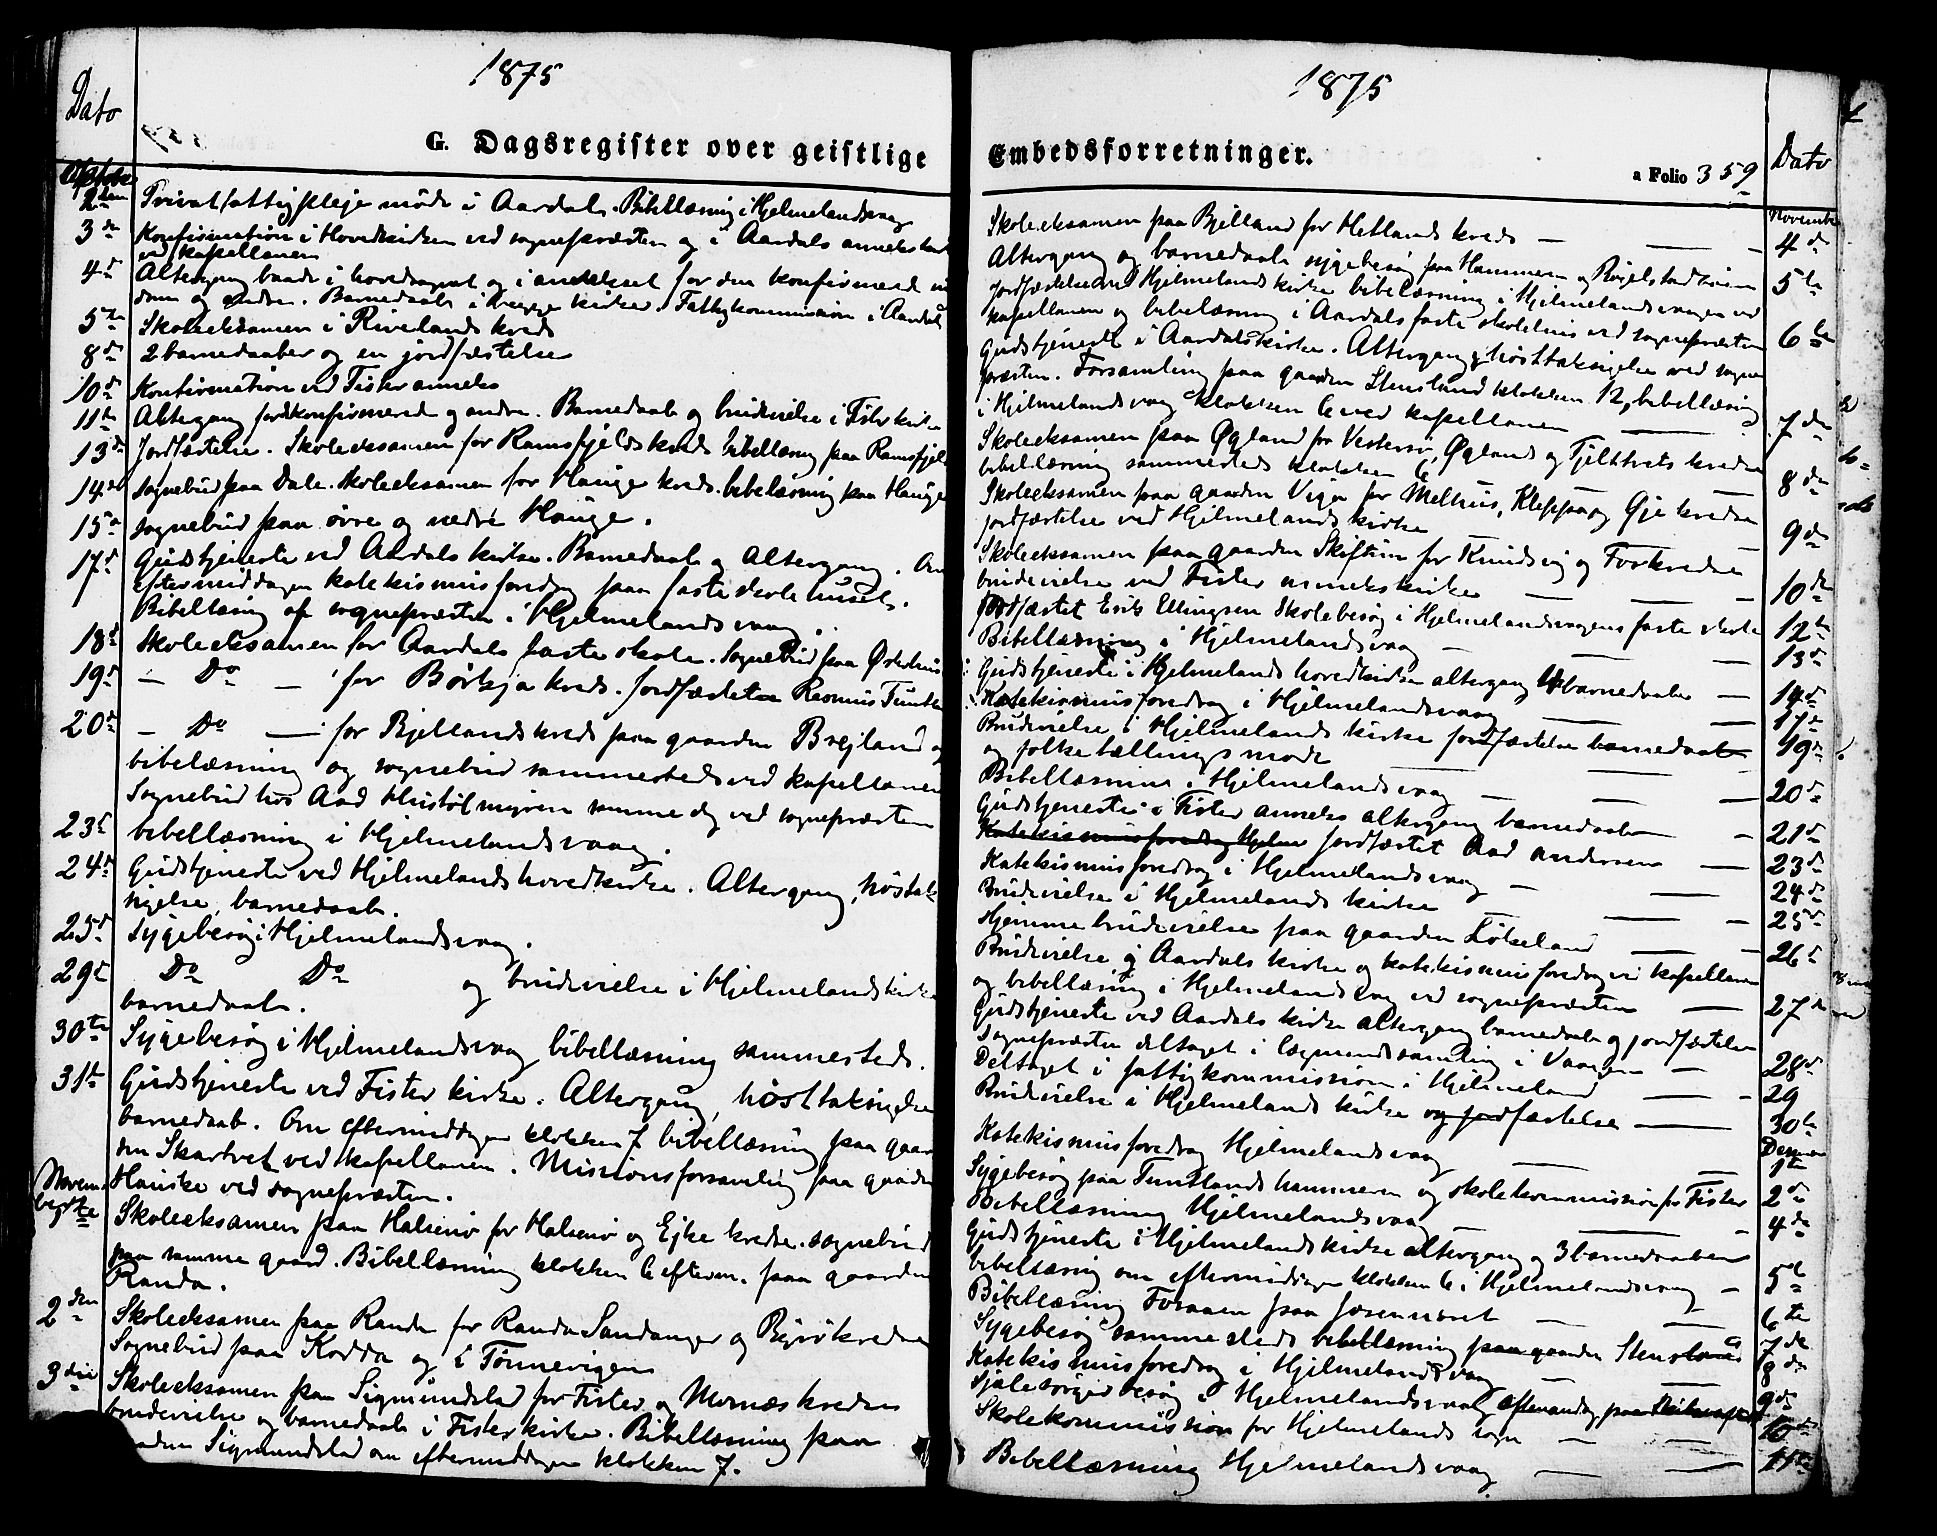 1875
Dato
G. Dagsregister over geistlige
2den Privat fattigpleje møde i Aardal. Bibellæsning i Hjelmelandsvaag
3de Konfirmation i Hovedkirken ved sognepræsten og i Aardals annekskirke
ved kapellanen
4de Altergang baade i hovedsognet og i annekset for den konfirmerede
dom og andre. Barnedaab i begge kirker. Fattigkommission i Aardal
5te Skoleeksamen i Rivelands kreds
8de 2 barnedaaber og en jordfæstelse
10de Konfirmation ved Fister anneks
11te Altergang for konfirmerede og andre. Barnedaab og brudevielse i Fister kirke
13de Jordfæstelse. Skoleeksamen for Ramsfjelds kreds bibellæsning paa Ramsfjeld
14de sognebud paa Dale. skoleeksamen for Hauge kreds. bibelæsning paa Hauge
15de sognebud paa øvre og nedre Hauge.
17de Gudstjeneste ved Aardals kirke. Barnedaab og Altergang. Om
eftermiddagen katekismusforedrag paa faste skolehuset.
Bibellæsning af sognepræsten i Hjelmelandsvaag.
18de Skoleeksamen for Aardals faste skole. Sognebud paa Østerhus
19de — Do — for Børkja kreds. Jordfæstet Rasmus
20de — Do — for Bjellands kreds paa gaarden Brejland og
bibelæsning og sognebud sammesteds ved kapellanen
Sognebud hos Aad samme dag ved sognepræsten
23de bibellæsning i Hjelmelandsvaag.
24de Gudstjeneste ved Hjelmelands hovedkirke. Altergang, høstak
sigelse, barnedaab.
25de Sygebesøg i Hjelmelandsvaag.
29de Do Do og brudevielse i Hjelmelands kirke
barnedaab.
30te Sygebesøg i Hjelmelandsvaag bibellæsning sammesteds.
31te Gudstjeneste ved Fister kirke. Altergang, høsttaksigelse
barnedaab. Om eftermiddagen klokken 7 bibellæsning paa gaar
den Skartvet ved kapellanen. Missionsforsamling paa gaarden
Hauske ved sognepræsten.
Novem-
ber
1ste Skoleeksamen paa Halsenø for Halsenø og Ejke kredse. sognebud
paa samme gaard. Bibellæsning klokken 6 efterm. paa gaarden
Randa.
2den Skoleeksamen paa Randa for Randa Sandanger og Byrökredse
Sognebud paa Kodda og i Tønnevigen
3die Skoleeksamen paa Sigmundstad for Fister og Mosnæs kredse
brudevielse og barnedaab i Fister kirke. Bibellæsning paa
gaarden Sigmundstad om eftermiddagen klokken 7.
1875
Embedsforretninger.
a Folio 359
Dato
November
Skoleeksamen paa Bjelland for Hetlands kreds — 4de
Altergang og barnedaab sygebesøg paa Hammeren og
Jordfæstelse ved Hjelmelands kirke bibelæsning i Hjelmelandsvaagen ved 5te
kapellanen og bibelæsning i Aardals faste skolehus ved sognepræsten
Gudstjeneste i Aardals kirke. Altergang høsttaksigelse ved sogne 6te
præsten. Forsamling paa gaarden Stensland klokken 12, bibellæsning
i Hjelmelandsvaag klokken 6 ved kapellanen — 7de
Skoleeksamen paa Øgland for Vestersø, Øgland og Tjeltveits kredse
bibellæsning sammesteds klokken 6 — 8de
Skoleeksamen paa gaarden Viga for Melhus, Kleppa og Øje kredse
jordfæstelse ved Hjelmelands kirke — 9de
Skoleeksamen paa gaarden Skiftun for Knudsvig og Foskredse
brudevielse ved Fister annekskirke — 10de
jordfæstet Erik Ellingsen Skolebesøg i Hjelmelandsvagens faste skole 12te
Bibellæsning i Hjelmelandsvaag — 13de
Gudstjeneste i Hjelmelands hovedkirke altergang 4 barnedaabe — 14de
Katekismusforedrag i Hjelmelandsvaag — 17de
Brudevielse i Hjelmelands kirke jordfæstelse barnedaab 19de
og folketællingsmøde
Bibellæsning i Hjelmelandsvaag — 20de
Gudstjeneste i Fister anneks altergang barnedaab — 21de
Katekismusforedrag Hjelme jordfæstet Aad Andersen — 23de
Katekismusforedrag i Hjelmelandsvaag — 24de
Brudevielse i Hjelmelands kirke — 25de
Hjemmebrudevielse paa gaarden Løkeland — 26de
Brudevielse i Aardals kirke og katekismusforedrag ved kapellanen
og bibellæsning i Hjelmelandsvaag ved sognepræsten — 27de
Gudstjeneste ved Aardals kirke altergang barnedaab og jordfæstelse
sognepræsten deltaget i lægmandssamling i Vaagen — 28de
Deltaget i fattigkommission i Hjelmeland — 29
Brudevielse i Hjelmelands kirke og jordfæstelse — 30te
Katekismusforedrag Hjelmelandsvaag — 1ste
Sygebesøg paa Tuntlands hammeren og skolekommission for Fister 2de
Bibellæsning Hjelmelandsvaag — 4de
Gudstjeneste i Hjelmelands kirke altergang og 3 barnedaaber
bibellæsning om eftermiddagen klokken 6 i Hjelmelandsvaag — 5te
Bibellæsning Foraaen paa Jøsenøret — 6te
Sygebesøg sammesteds bibellæsning paa gaarden Stensland 7de
Katekismusforedrag i Hjelmelandsvaag — 8de
Sjælesørger besøg i Hjelmelandsvaag 9de
Skolekommission for Hjelmelands sogn — 10de
Bibellæsning Hjelmelandsvaag — 11te